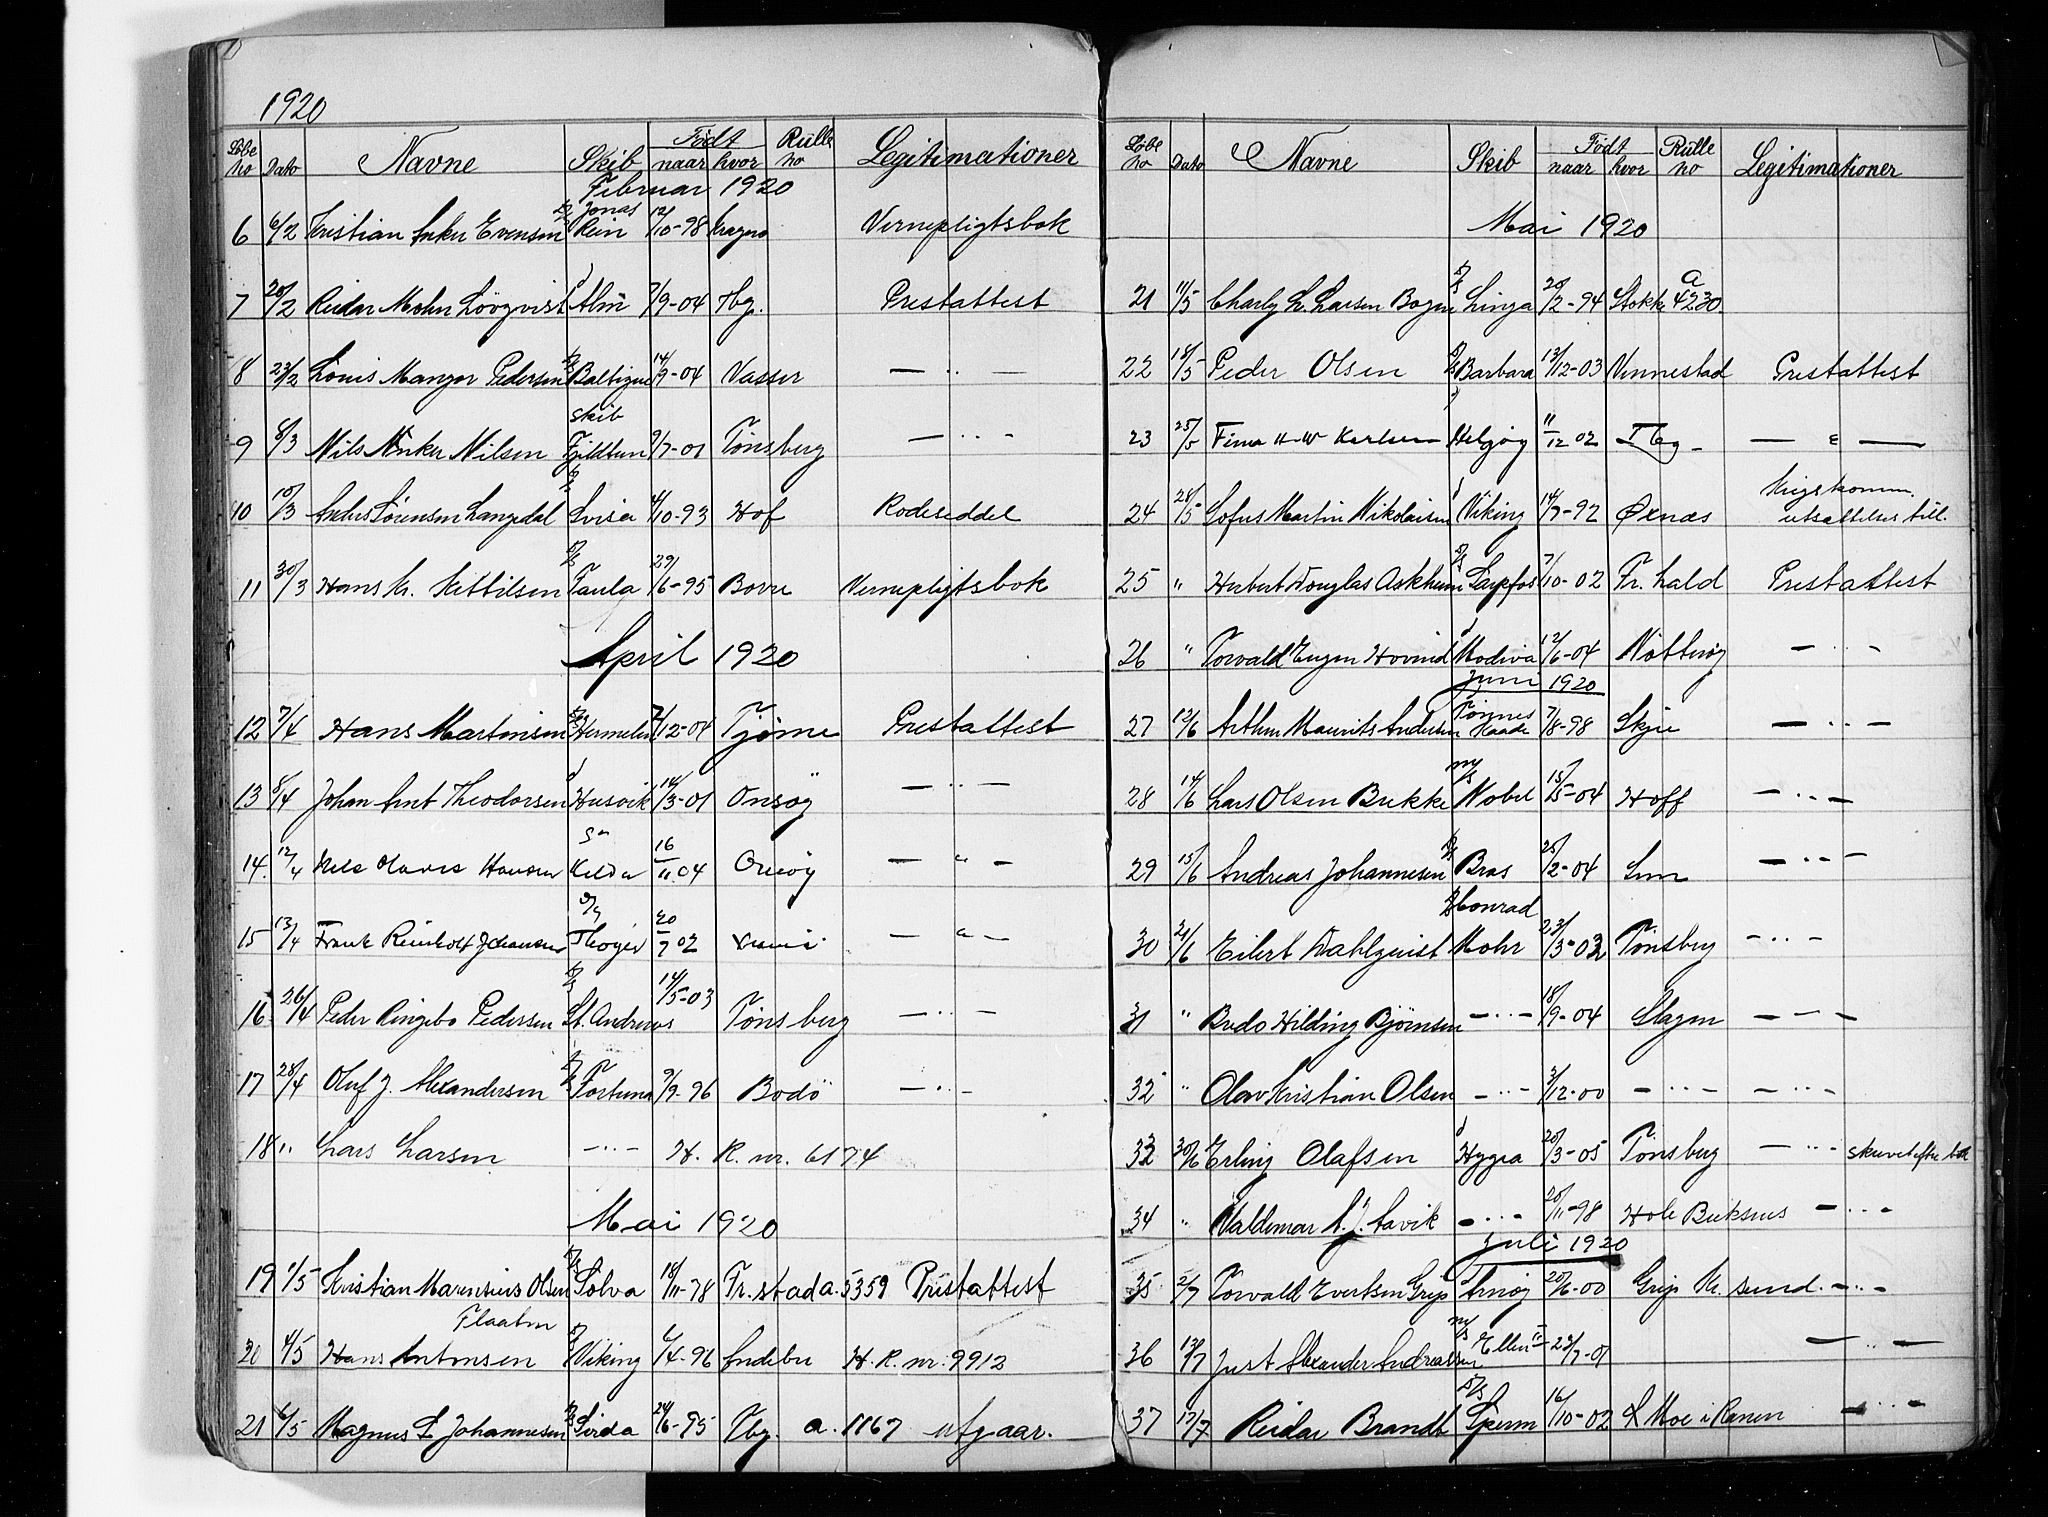 1920
Løbe no Dato Navne Skib Født naar hvor Rulle no Legitimationer
Februar 1920
6 6/2 Kristian Anker Evensen D/S Jonas Rein 12/10-98 Kragerø Vernepligtsbok
7 20/2 Reidar Mohn Lövqvist Alm 7/9-04 Tbg. Prestattest
8 23/2 Louis Mangor Pedersen D/S Baltique 14/9-04 Vasser — " —
9 8/3 Nils Anker Nilsen Skib Fjeldtun 9/7-01 Tönsberg — " —
10 10/3 Anders Sörensen Langedal D/S Lovisa 4/10-93 Hof Rodeseddel
11 30/3 Hans Kr. Kittilsen D/S Taula 29/6-95 Borre Vernepligtsbok
April 1920
12 7/4 Hans Martinsen D/S Hermelin 7/12-04 Tjøme Prestattest
13 8/4 Johan Arnt Theodorsen Husvik 14/3-01 Onsöy — " —
14 12/4 Nils Olaves Hansen Kelda 16/11 04 Onsöy — " —
15 13/4 Frank Reinholt Johansen Thoger 20/7 02 — " —
16 26/4 Peder Ringebo Pedersen D/S St. Andrews 14/5-03 Tönsberg — " —
17 28/4 Oluf J. Alexandersen D/S Fortuna 9/9-96 Bodö — " —
18 " Lars Larsen — " — H. R. nr. 6174
Mai 1920
19 1/5 Kristian Marensius Olsen D/S Solva 18/11-78 Fr.stad a. 5359 Prestattest
Flaaten
20 4/5 Hans Antonsen D/S Viking 6/4-96 Andebu H. R. nr. 9912
21 6/5 Magnus L Johannesen D/S Sirda 24/6-95 Tbg. a. 1167 utgaar.
Løbe no Dato Navne Skib Født naar hvor Rulle no Legitimationer
Mai 1920
21 11/5 Charly L. Larsen Bogen D/S Linga 20/2-94 Stokke a 4230
22 18/5 Peder Olsen D/S Barbara 13/12-03 Vennestad Prestattest
23 25/5 Finn H W Karlsen Helgøy 11/12 02 Tbg — " —
24 28/5 Sofus Martin Nikolaisen Viking 14/7-92 Øxnes Krigskomm. utsættelses till.
25 " Herbert Douglas Askheim D/S Sarpfos 7/10-02 Fr. hald Prestattest
26 " Torvald Eugen Hovind Modiva 12/6-04 Nötteröy — " —
Juni 1920
27 12/6 Arthur Maurits Andersen Tönnes Haade 7/8-98 Skjee — " —
28 14/6 Lars Olsen Bekke M/S Nobel 15/5-04 Hoff — " —
29 15/6 Andreas Johannesen D/S Bras 25/12-04 Sem — " —
30 21/6 Eilert Dahlquist D/S Conrad Mohr 23/3-03 Tönsberg — " —
31 " Bodo Hilding Bjørnsen — " — 18/9-04 Slagen — " —
32 " Olav Kristian Olsen — " — 3/12-00 — " — — " —
33 30/6 Erling Olafsen Hygea 20/3-05 Tönsberg — " — skrevet efter bok
34 " Valdemar A. J. Aavik — " — 20/11-98 Hole Buksnes — " —
Juli 1920
35 2/7 Torvald Evertsen Grip Arnöy 20/6-00 Grip Kr. sund. — " —
36 13/7 Just Alexander Andreassen M/S Ellen II 23/7-01 — " —
37 17/7 Reidar Brandt S/S Sperm 16/10-02 Moe i Ranen — " —